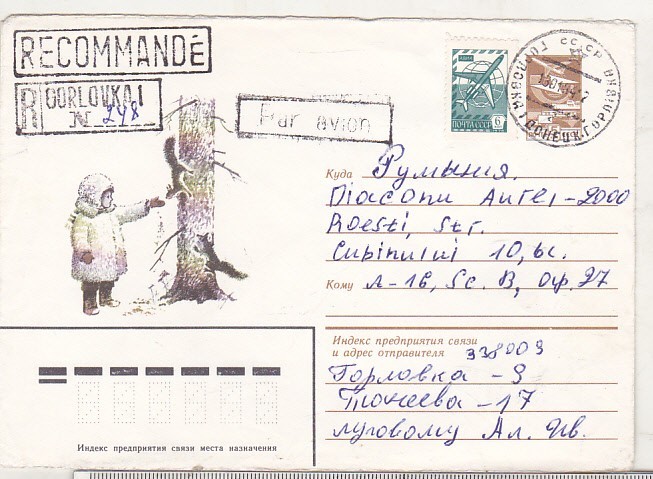 RECOMMANDÉ
R GORLOVKA 1
N 248
Par avion
АВИА
ПОЧТА СССР 6
СССР
Куда Румыния.
Diaconu Aurel-2000
Str.
10, bl.
Кому A-16, Sc. B, Оф. 27
Индекс предприятия связи
и адрес отправителя 338009
Горловка -9
-17
Луговому Ал. Ив.
Индекс предприятия связи места назначения